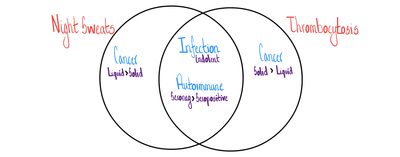 Night Sweats
Thrombocytosis
Cancer
Liquid > Solid
Infection
Indolent
Autoimmune
Seroneg > Seropositive
Cancer
Solid > Liquid